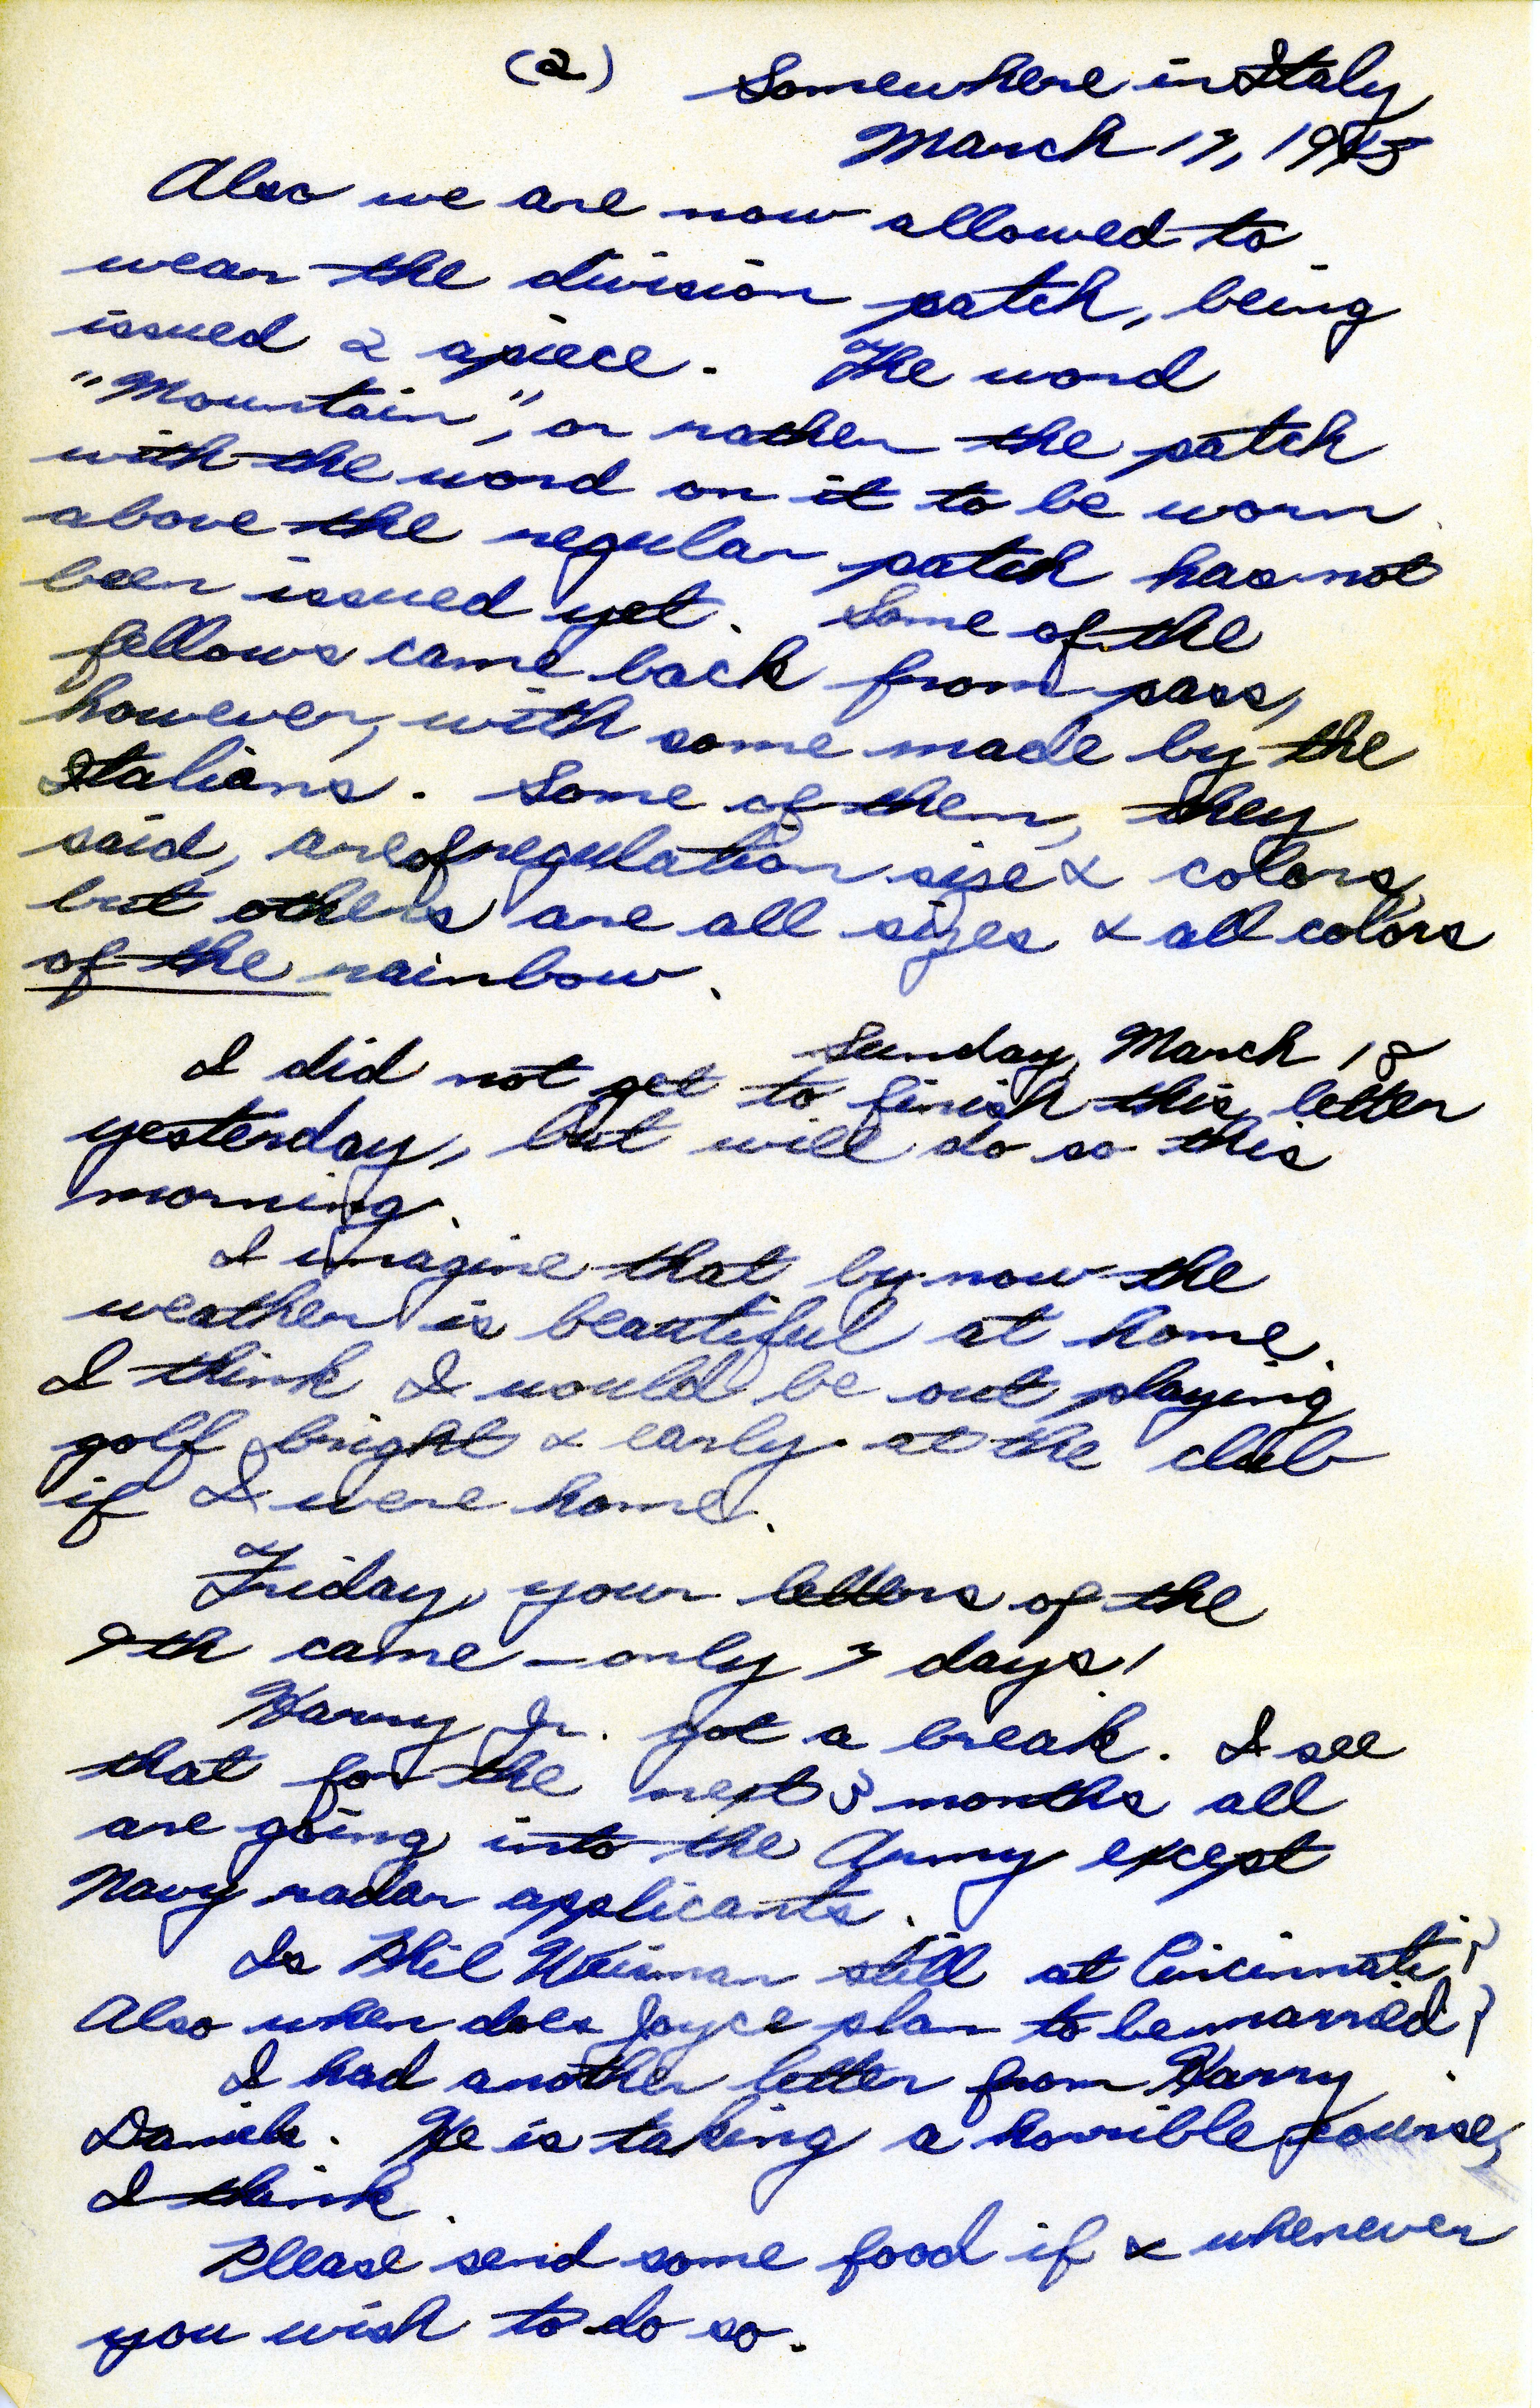 (2) Somewhere in Italy
March 17, 1945
Also we are now allowed to
wear the division patch, being
issued 2 apiece. The word
"Mountain", or rather the patch
with the word on it to be worn
above the regular patch has not
been issued yet. Some of the
fellows came back from pass,
however, with some made by the
Italians. Some of them, they
said, are of regulation size & colors,
but others are all sizes & all colors
of the rainbow.
Sunday, March 18
I did not get to finish this letter
yesterday, but will do so this
morning.
I imagine that by now the
weather is beautiful at home.
I think I would be out playing
golf bright & early at the club
if I were home.
Friday, your letters of the
9th came – only 7 days!
Harry Jr. got a break. I see
that for the next 3 months all
are going into the Army except
Navy radar applicants.
Is Phil Weisman still at Cincinnati?
Also when does Joyce plan to be married?
I had another letter from Harry
Daniels. He is taking a horrible course,
I think.
Please send some food if & whenever
you wish to do so.